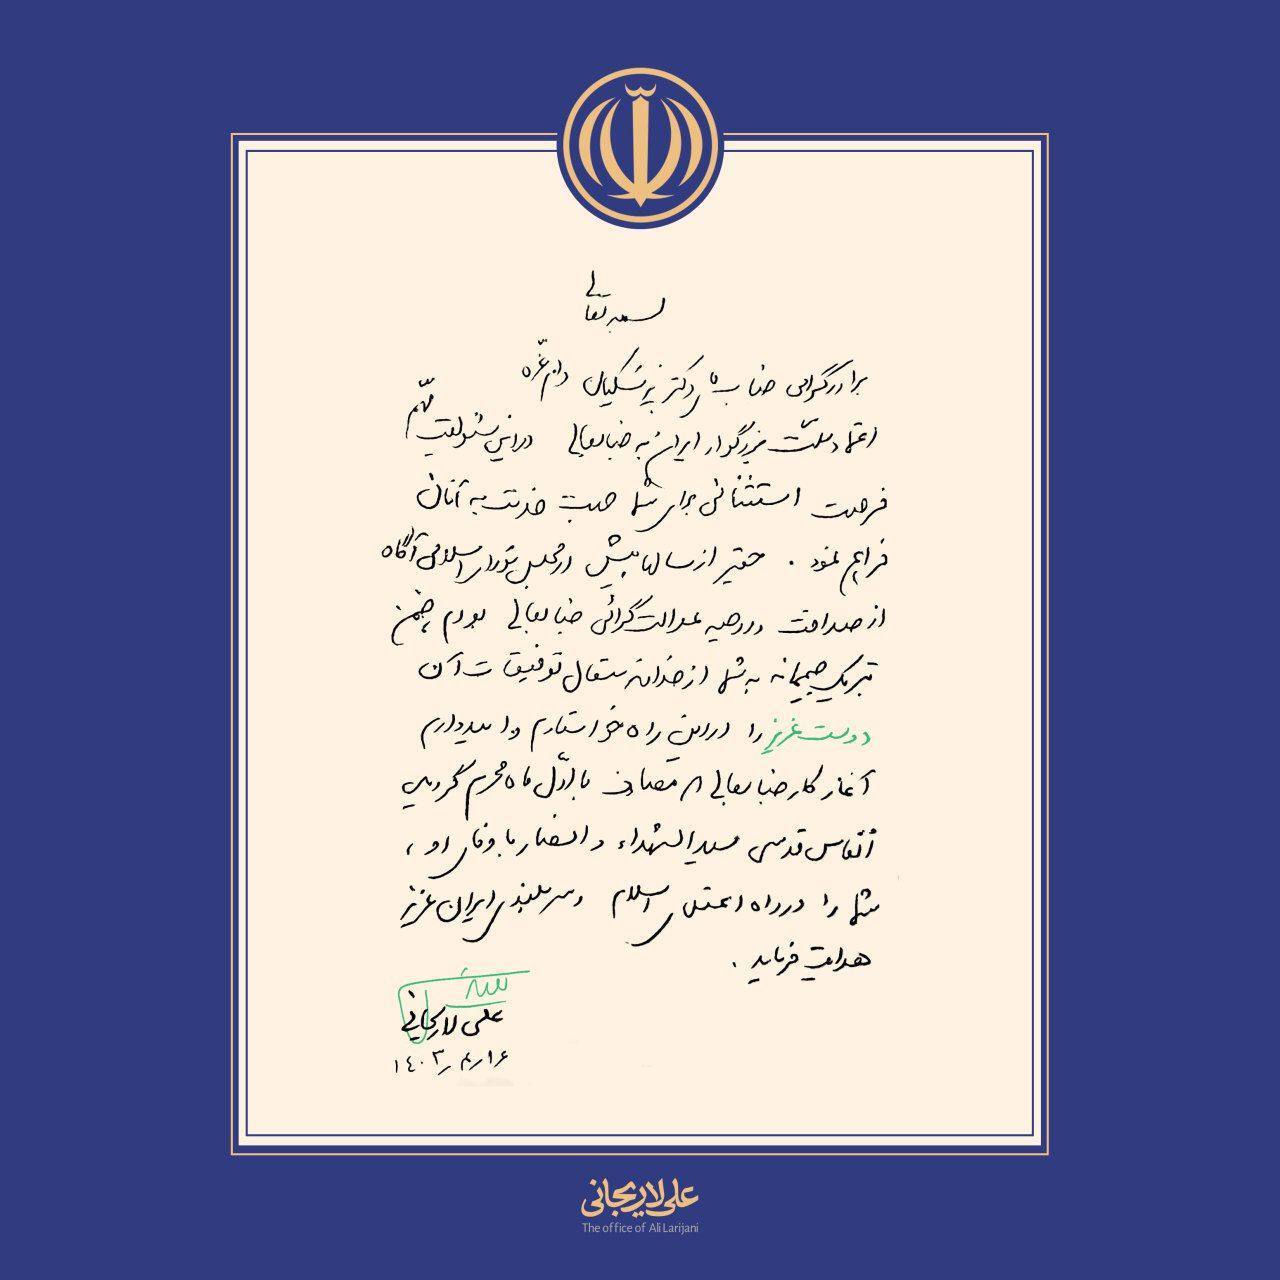 بسمه تعالی
برادر گرامی جناب آقای دکتر پزشکیان دام عزّه
اعتماد ملّت بزرگوار ایران به جنابعالی در این مسئولیت مهّم
فرصت استثنائی برای شما جهت خدمت به آنان
فراهم نمود . حقیر از سالها پیش در مجلس شورای اسلامی آگاه
از صداقت و روحیه عدالت‌گرائی جنابعالی بودم ، ضمن
تبریک صمیمانه به شما از خداوند متعال توفیقات آن
دوست عزیز را در این راه خواستارم و امیدوارم
آغاز کار جنابعالی که مصادف با اوّل ماه محرم گردیده
انفاس قدسی سیدالشهداء و انصار با وفای او ،
شما را در راه اعتلای اسلام و سربلندی ایران عزیز
هدایت فرماید .
علی لاریجانی
۱۶ر۴ر۱۴۰۳
علی لاریجانی
The office of Ali Larijani